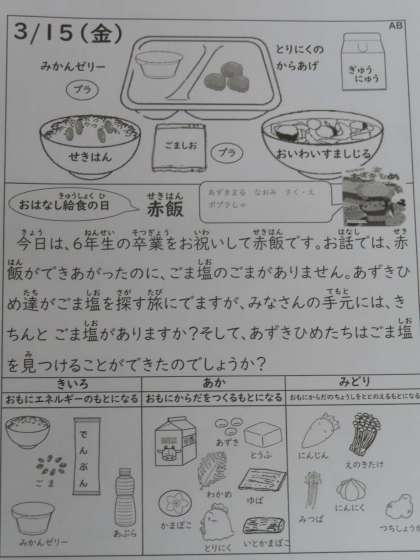 3/15(金)
AB
みかんゼリー
プラ
とりにくの
からあげ
ぎゅう
にゅう
せきはん
ごましお
プラ
おいわいすましじる
きゅうしょく ひ
おはなし給食の日
せきはん
赤飯
あずきまる なおみ さく・え
ポプラしゃ
きょう ねんせい そつぎょう いわ せきはん はなし せき
今日は、6年生の卒業をお祝いして赤飯です。お話では、赤
はん しお
飯ができあがったのに、ごま塩のごまがありません。あずきひ
たち しお さが たび てもと
め達がごま塩を探す旅にでますが、みなさんの手元には、き
しお しお
ちんと ごま塩がありますか?そして、あずきひめたちはごま塩
み
を見つけることができたのでしょうか?
きいろ
あか
みどり
おもにエネルギーのもとになる
おもにからだをつくるもとになる
おもにからだのちょうしをととのえるもとになる
ごま
でんぷん
みかんゼリー
あぶら
あずき
とうふ
わかめ
ゆば
かまぼこ
とりにく
いとかまぼこ
にんじん
えのきたけ
みつば
にんにく
つちしょうが